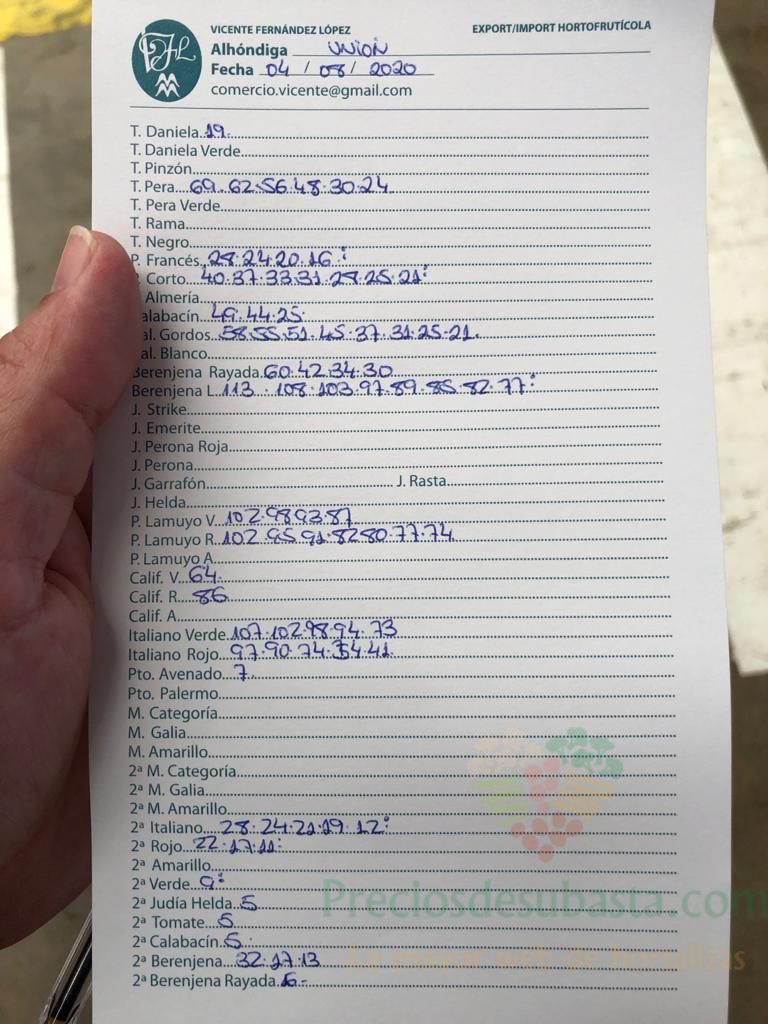 VICENTE FERNÁNDEZ LÓPEZ EXPORT/IMPORT HORTOFRUTÍCOLA
Alhóndiga UNION
Fecha 04 / 08 / 2020
comercio.vicente@gmail.com
T. Daniela 19.
T. Daniela Verde
T. Pinzón
T. Pera 69.62.56.48.30.24
T. Pera Verde
T. Rama
T. Negro
P. Francés 28.24.20.16:
Corto 40.37.33.31.28.25.21:
Almería
alabacín 49.44.25.
al. Gordos 58.55.51.45.37.31.25.21.
al. Blanco
Berenjena Rayada 60.42.34.30
Berenjena L. 113.108.103.97.89.85.82.77:
J. Strike
J. Emerite
J. Perona Roja
J. Perona
J. Garrafón J. Rasta
J. Helda
P. Lamuyo V. 102.98.93.87
P. Lamuyo R. 102.95.91.82.80.77.74
P. Lamuyo A
Calif. V. 64.
Calif. R. 86
Calif. A
Italiano Verde 107.102.98.94.73
Italiano Rojo 97.90.74.54.41
Pto. Avenado 7.
Pto. Palermo
M. Categoría
M. Galia
M. Amarillo
2ª M. Categoría
2ª M. Galia
2ª M. Amarillo
2ª Italiano 28.24.21.19.12:
2ª Rojo 22.17.11:
2ª Amarillo
2ª Verde 9:
2ª Judía Helda 5
2ª Tomate 5
2ª Calabacín 5.
2ª Berenjena 32.17.13
2ª Berenjena Rayada 6.-
Preciosdesubasta.com
La mayor web de hortalizas